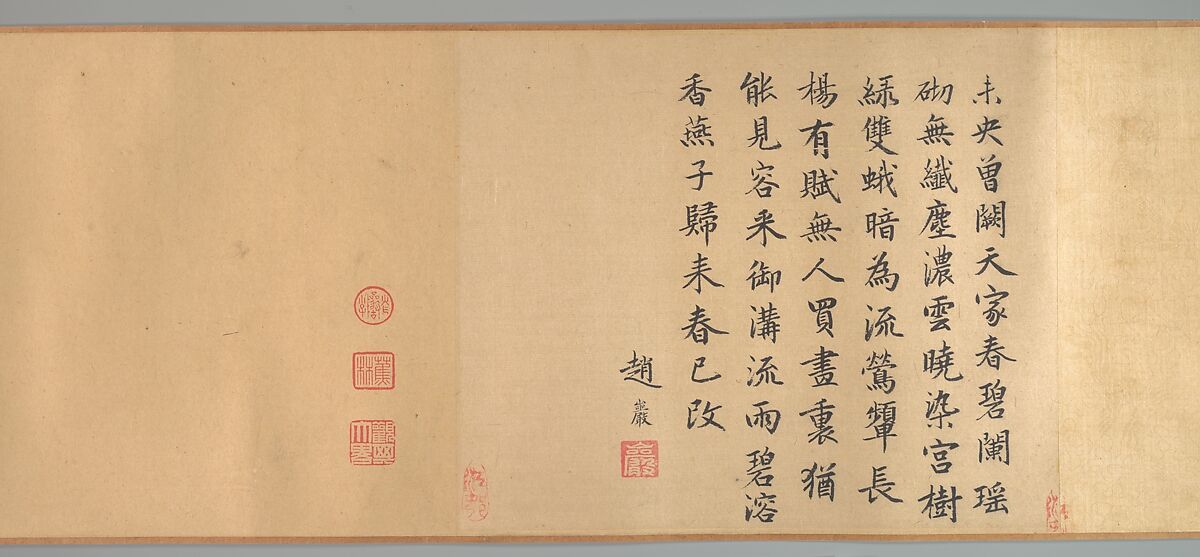 未央曾闕天家春碧闌瑶
砌無纖塵濃雲曉染宮樹
緑雙蛾暗為流鶯顰長
楊有賦無人買畫裏猶
能見容采御溝流雨碧溶
香燕子歸来春已改
趙巖
巖
蕉林
觀其大略